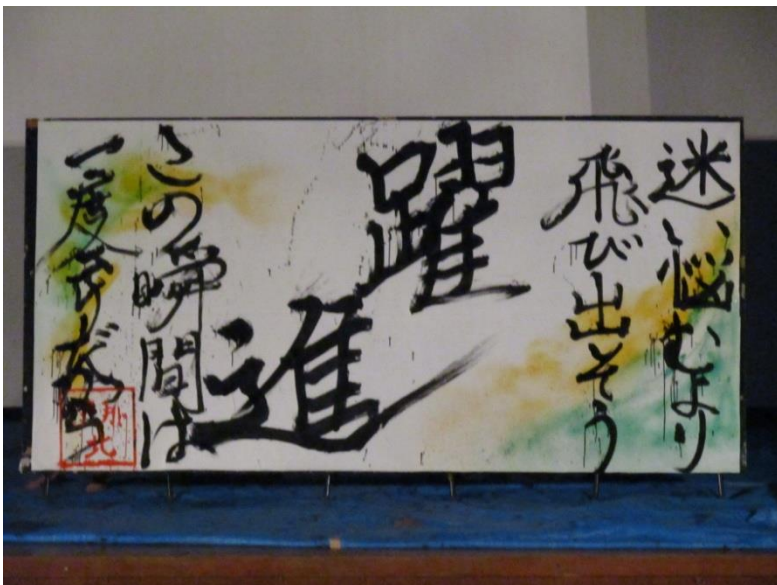 迷い悩むより
飛び出そう
躍進
この瞬間は
一度きりだから